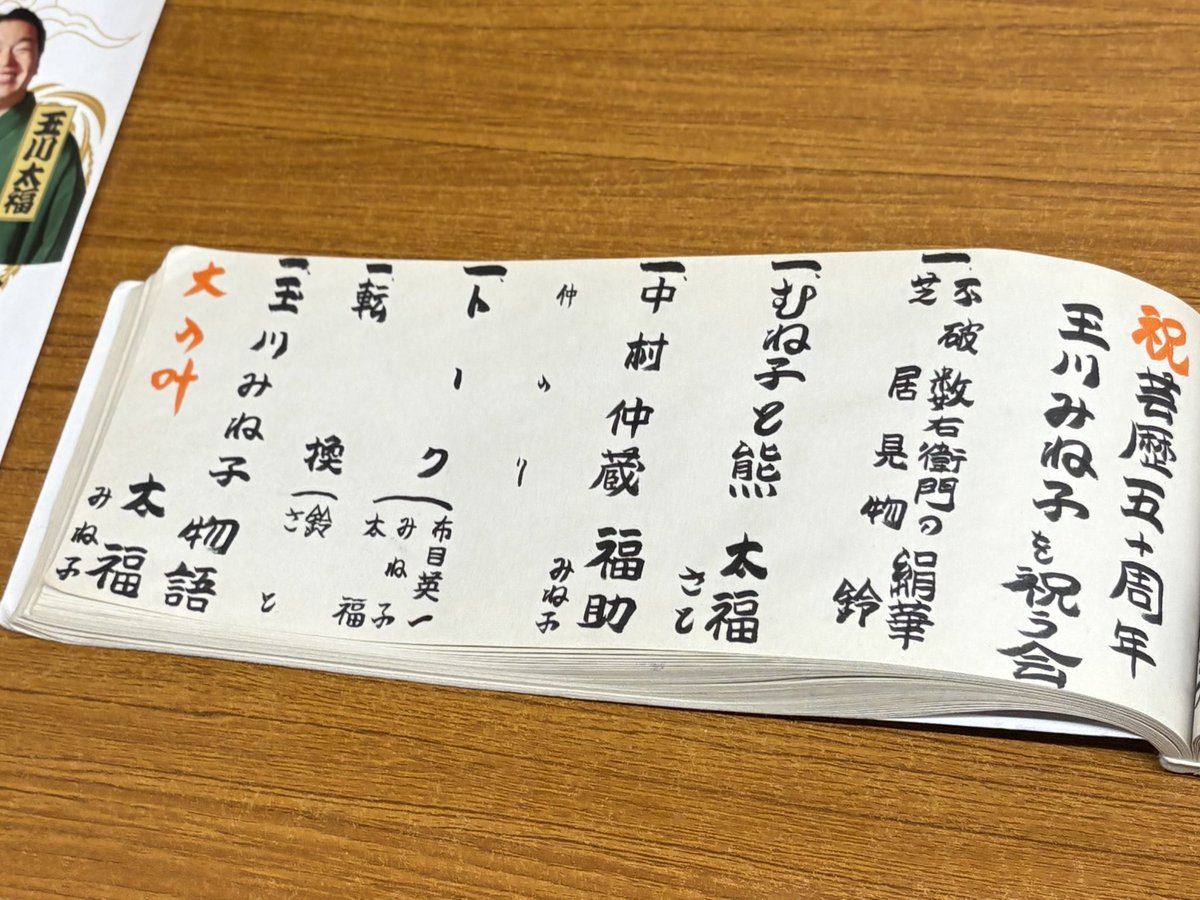 祝芸歴五十周年
玉川みね子を祝う会
一、不破数右衛門の 絹華
芝居見物 鈴
一、むね子と熊 太福
さと
一、中村仲蔵 福助
みね子
仲入り
一、トーク(布目英一
みね子
太福
一、転換(鈴
さと
一、玉川みね子物語
太福
みね子
大入叶
玉川太福